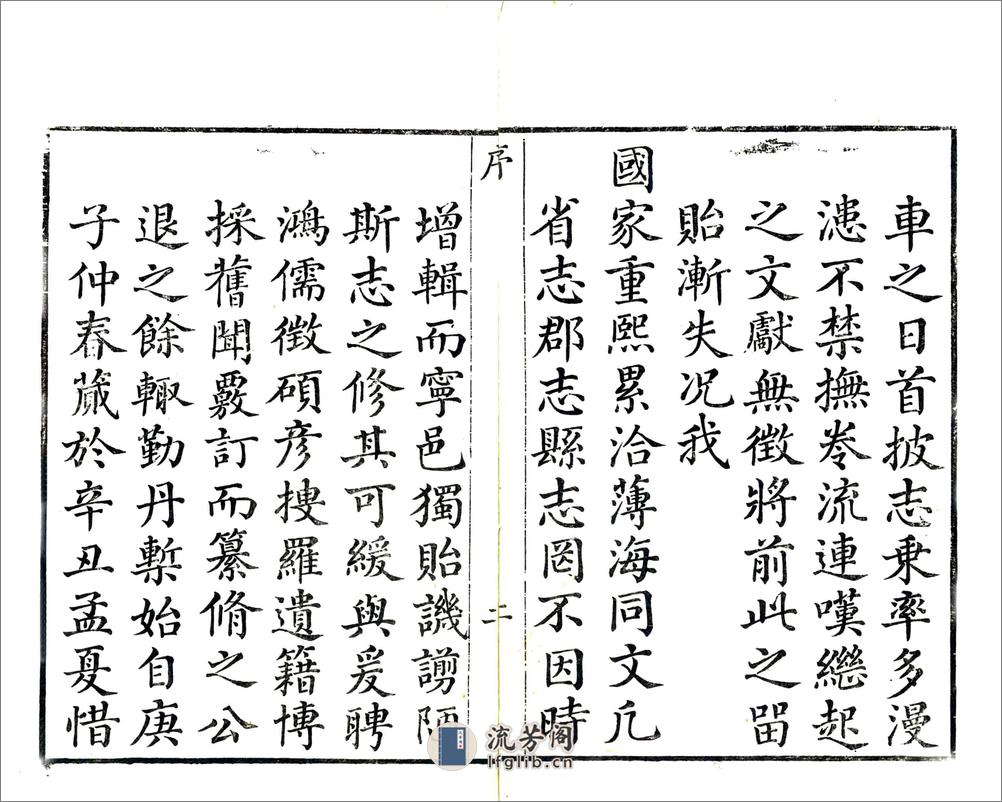 車之日首披志乗率多漫
漶不禁撫卷流連嘆繼起
之文獻無徴將前此之留
貽漸失况我
國家重熙累洽薄海同文凡
省志郡志縣志罔不因時
序
二
增輯而寧邑獨貽譏謭陋
斯志之修其可緩與爰聘
鴻儒徴碩彦摟羅遺籍博
採舊聞覈訂而纂脩之公
退之餘輙勤丹槧始自庚
子仲春蕆於辛丑孟夏惜
流芳阁
lfglib.cn